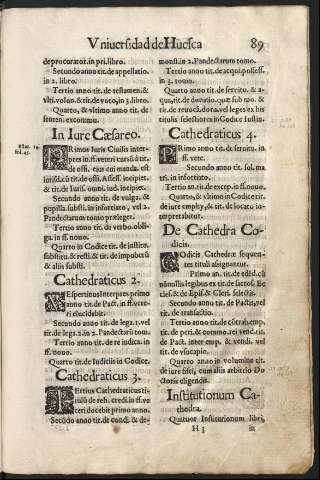 Vniuersidad de Huesca 89
de procurator. in pri. libro.
Secundo anno tit. de appellatio.
in 2. libro.
Tertio anno tit. de testamen. &
vlti. volun. & tit. de voto, in 3. libro.
Quarto, & vltimo anno tit. de
senten. excommu.
In Iure Cæsareo.
PRimus Iuris Ciuilis inter-
pres in ff. veteri cursū à tit.
de offi. eius cui manda. est
iurisd. cū tit. de offi. Assess. incipiet,
& tit. de Iuris. omni. iud. incipiet.
Secundo anno tit. de vulga. &
pupilla. substi. in infortiato, vel 2.
Pandectarum tomo prælēget.
Tertio anno tit. de verbo. obli-
ga. in ff. nouo.
Quarto in Codice tit. de institu.
substitu. & resti. & tit. de impuberū
& aliis substi.
Cathedraticus 2.
VEspertinus Interpres primo
anno tit. de Pact. in ff. vete-
ri elucidabit.
Secundo anno tit. de lega. 1. vel
tit. de lega. 2. in 2. Pandectarū tom.
Tertio anno tit. de re iudica. in
ff. nouo.
Quarto anno tit. de Iudiciis in Codice.
Cathedraticus 3.
TErtius Cathedraticus ti-
tulū de reb. credi. in ff. ve
teri docebit primo anno.
Secūdo anno tit. de condi. & de-
monst. in 2. Pandectarum tomo.
Tertio anno tit. de acqui. possess.
in 3. tomo.
Quarto anno tit. de seruitu. & a-
qua, tit. de donatio. quæ sub mo. &
tit. de reuoca. dona. vel leges ex his
titulis selectiores in Codice Iustin.
Cathedraticus 4.
PRimo anno tit. de seruitu. in
ff. vete.
Secundo anno tit. sol. ma-
tri. in infortiato.
Tertio an. tit. de excep. in ff. nouo.
Quarto, & vltimo in Codice tit.
de iure emphy. & tit. de locato in-
terpretabitur.
De Cathedra Co-
dicis.
COdicis Cathedræ sequen-
tes tituli assignantur.
Primo an. tit. de edēd. cū
nōnullis legibus ex tit. de sacros. Ec
cles. & de Epis. & Cleri. selectis.
Secundo anno tit. de Pactis, vel
tit. de transactio.
Tertio anno, tit. de cōtrah. emp.
tit. de peri. & commo. rei vend. tit.
de Pact. inter emp. & vendi. vel
tit. de vsucapio.
Quarto anno in volumine tit.
de iure fisci, cum aliis arbitrio Do-
ctoris eligendis.
Institutionum Ca-
thedra.
Quatuor Institutionum libri,
H 3 in